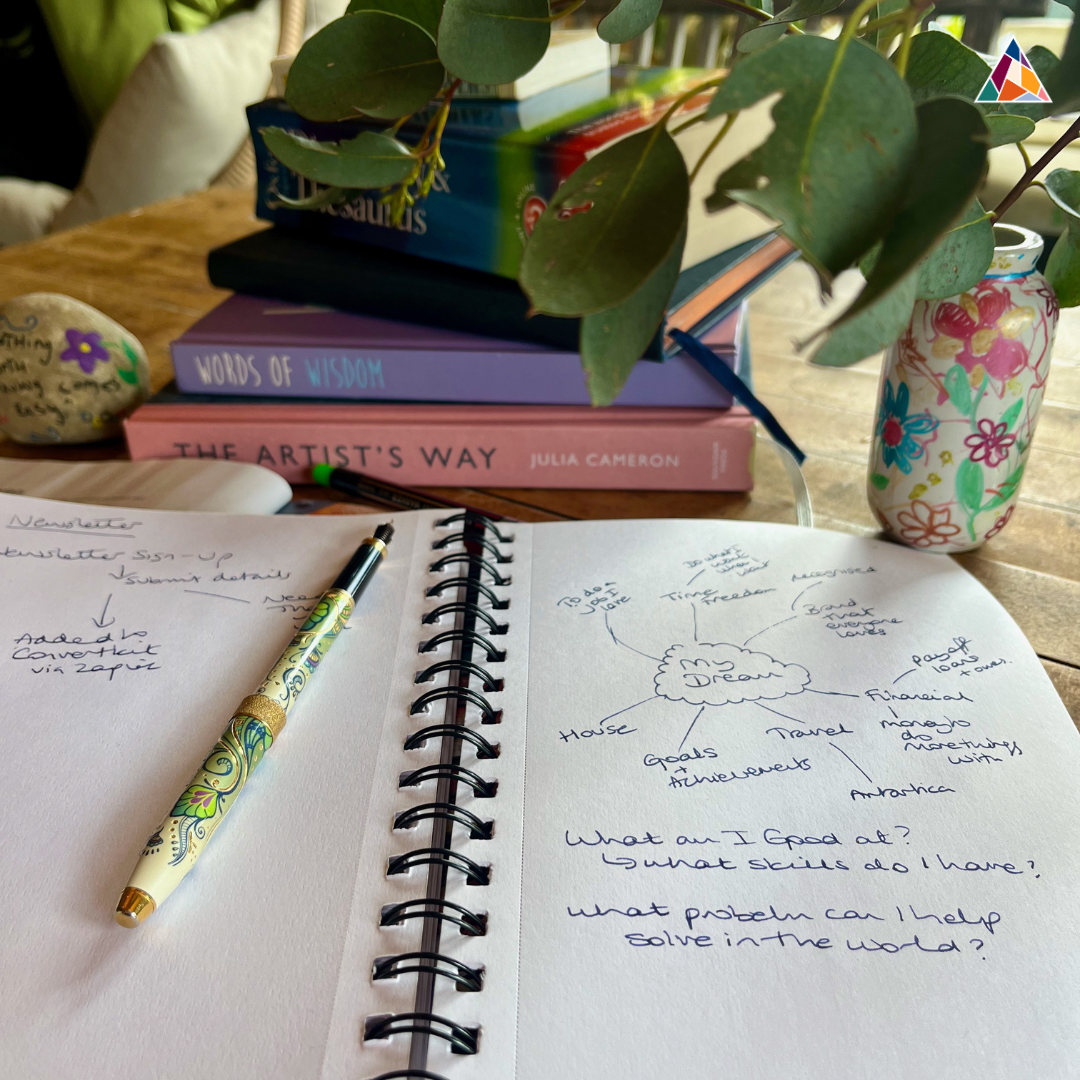 &
Thesaurus
WORDS OF WISDOM
THE ARTIST'S WAY JULIA CAMERON
easy.
Newsletter
Newsletter Sign-up
Submit details
Need
Added to
Convertkit
via Zapier
To do a
job I
love
Time
Freedom
Do what I
want
when I
want
Recognised
Brand
that
everyone
loves
My
Dream
Financial
Pay off
loans
money to
do
more things
with
House
Goals
+
Achievements
Travel
Antartica
What am I Good at?
what skills do I have?
what probelm can I help
solve in the world?